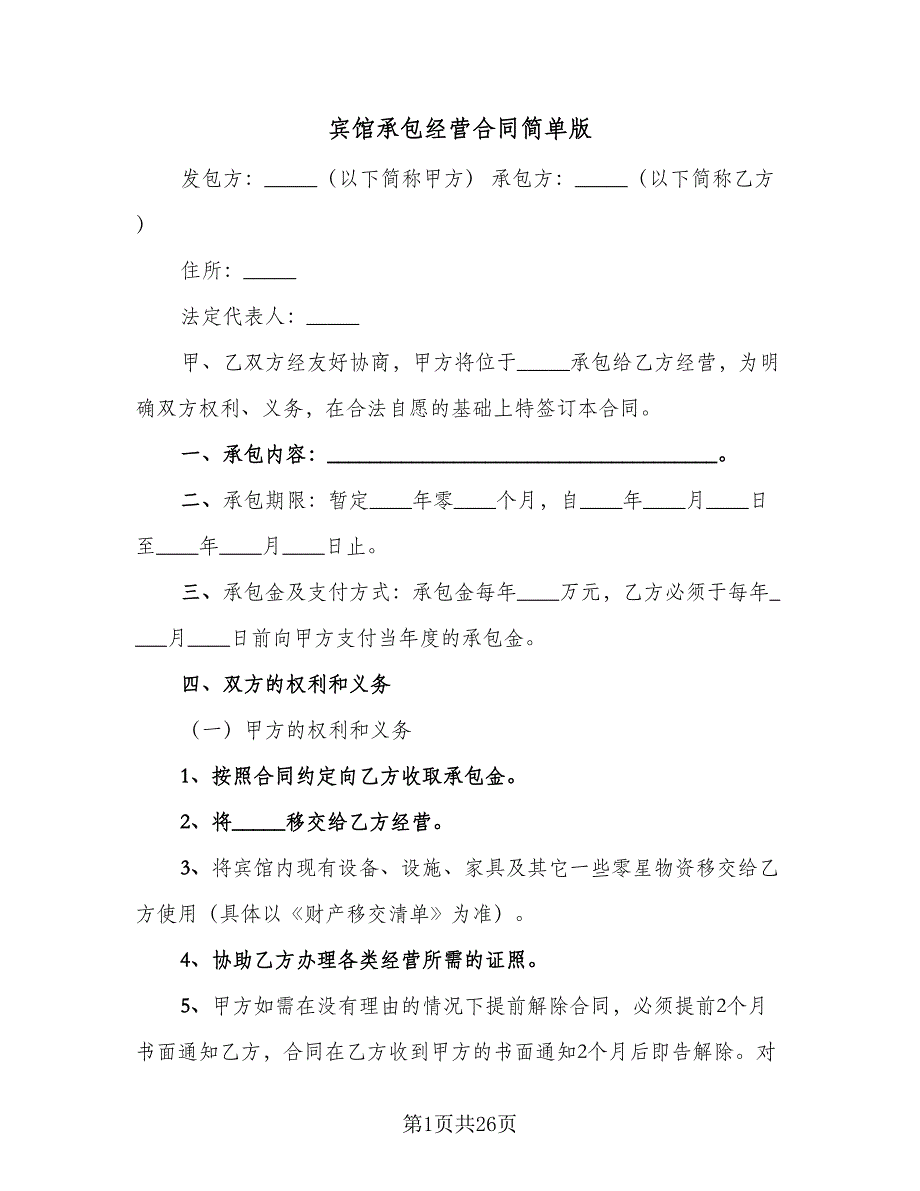 宾馆承包经营合同简单版
发包方：_____（以下简称甲方） 承包方：_____（以下简称乙方
）
住所：_____
法定代表人：_____
甲、乙双方经友好协商，甲方将位于_____承包给乙方经营，为明
确双方权利、义务，在合法自愿的基础上特签订本合同。
一、承包内容：_____________________________________。
二、承包期限：暂定____年零____个月，自____年____月____日
至____年____月____日止。
三、承包金及支付方式：承包金每年____万元，乙方必须于每年_
___月____日前向甲方支付当年度的承包金。
四、双方的权利和义务
（一）甲方的权利和义务
1、按照合同约定向乙方收取承包金。
2、将_____移交给乙方经营。
3、将宾馆内现有设备、设施、家具及其它一些零星物资移交给乙
方使用（具体以《财产移交清单》为准）。
4、协助乙方办理各类经营所需的证照。
5、甲方如需在没有理由的情况下提前解除合同，必须提前2个月
书面通知乙方，合同在乙方收到甲方的书面通知2个月后即告解除。对
第1页共26页